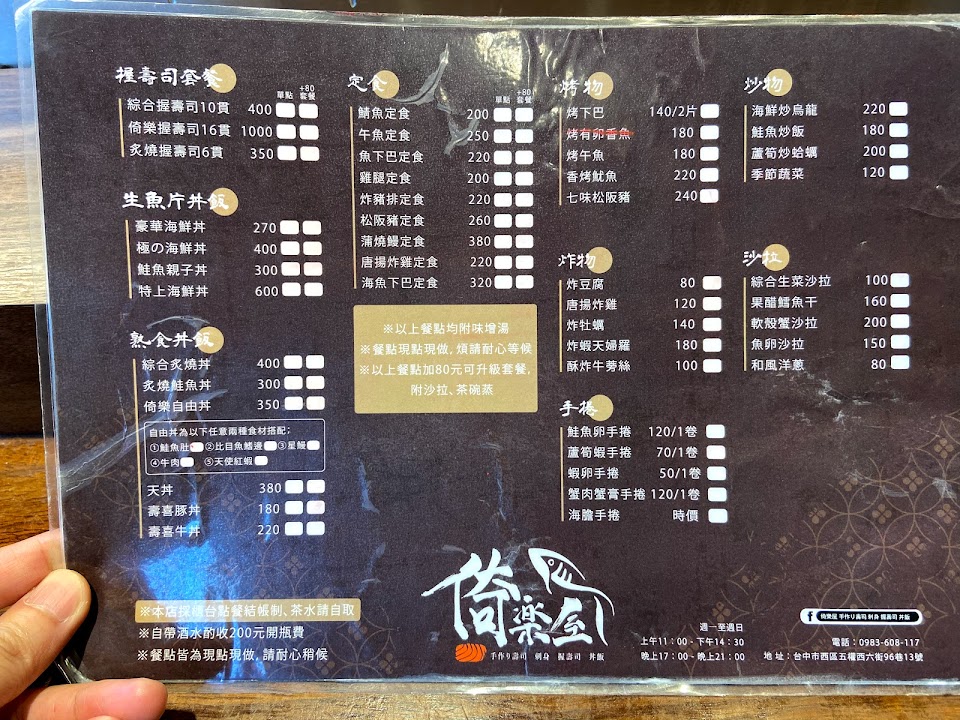 握壽司套餐
單點 +80套餐
綜合握壽司10貫 400
倚樂握壽司16貫 1000
炙燒握壽司6貫 350
生魚片丼飯
豪華海鮮丼 270
極の海鮮丼 400
鮭魚親子丼 300
特上海鮮丼 600
熟食丼飯
綜合炙燒丼 400
炙燒鮭魚丼 300
倚樂自由丼 350
自由丼為以下任意兩種食材搭配;
①鮭魚肚 ②比目魚鰭邊 ③星鰻
④牛肉 ⑤天使紅蝦
天丼 380
壽喜豚丼 180
壽喜牛丼 220
※本店採櫃台點餐結帳制、茶水請自取
※自帶酒水酌收200元開瓶費
※餐點皆為現點現做,請耐心稍候
定食
單點 +80套餐
鯖魚定食 200
午魚定食 250
魚下巴定食 220
雞腿定食 200
炸豬排定食 220
松阪豬定食 260
蒲燒鰻定食 380
唐揚炸雞定食 220
海魚下巴定食 320
※以上餐點均附味增湯
※餐點現點現做,煩請耐心等候
※以上餐點加80元可升級套餐,
附沙拉、茶碗蒸
烤物
烤下巴 140/2片
烤有卵香魚 180
烤午魚 180
香烤魷魚 220
七味松阪豬 240
炸物
炸豆腐 80
唐揚炸雞 120
炸牡蠣 140
炸蝦天婦羅 180
酥炸牛蒡絲 100
手捲
鮭魚卵手捲 120/1卷
蘆筍蝦手捲 70/1卷
蝦卵手捲 50/1卷
蟹肉蟹膏手捲 120/1卷
海膽手捲 時價
炒物
海鮮炒烏龍 220
鮭魚炒飯 180
蘆筍炒蛤蠣 200
季節蔬菜 120
沙拉
綜合生菜沙拉 100
果醋鱈魚干 160
軟殼蟹沙拉 200
魚卵沙拉 150
和風洋蔥 80
倚樂屋
手作り壽司 刺身 握壽司 丼飯
週一至週日
上午11:00 - 下午14:30
晚上17:00 - 晚上21:00
倚樂屋 手作り壽司 刺身 握壽司 丼飯
電話:0983-608-117
地址:台中市西區五權西六街96巷13號